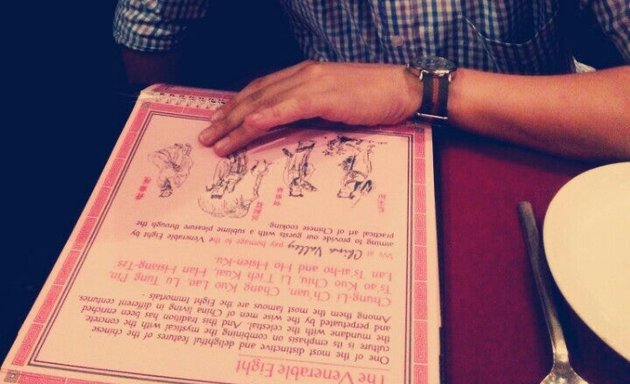 The Venerable Eight
One of the most distinctive and delightful features of the chinese
culture is its emphasis on combining the mystical with the concrete,
the mundane with the celestial. And this tradition has been enriched
and perpetuated by the wise men of living China in different centuries.
Among them the most famous are the Eight Immortals -
Chung-Li Ch'uan, Chang Kuo Lao, Lu Tung Pin,
Ts'ao Kuo Chiu, Li T'ieh Kuai, Han Hsiang-Tzs
Lan Ts'ai-ho and Ho Hsien-Ku.
We at China Valley pay homage to the Venerable Eight by
aiming to provide our guests with sublime pleasure through the
practical art of Chinese cooking.